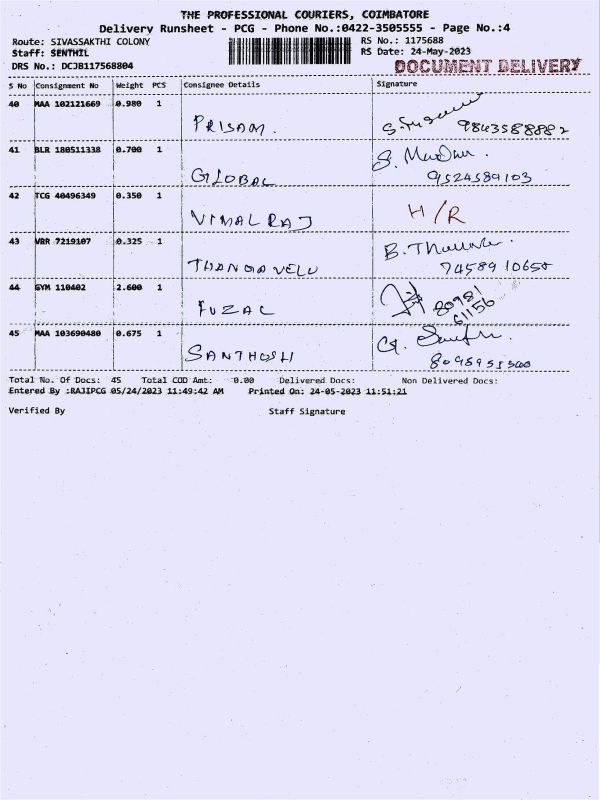 THE PROFESSIONAL COURIERS, COIMBATORE
Delivery Runsheet - PCG - Phone No.:0422-3505555 - Page No.:4
Route: SIVASSAKTHI COLONY RS No.: 1175688
Staff: SENTHIL RS Date: 24-May-2023
DRS No.: DCJB117568804 DOCUMENT DELIVERY
S No Consignment No Weight PCS Consignee Details Signature
40 MAA 102121669 0.980 1
PRISAM. 9843588882
41 BLR 180511338 0.700 1
GLOBAL 9524589103
42 TCG 40496349 0.350 1
VIMAL RAJ H/R
43 VBR 7219107 0.325 1 B.
THANGAVELU
44 GYM 110402 2.600 1
FUZAL 80981
61156
45 MAA 103690480 0.675 1
SANTHOSH
Total No. Of Docs: 45 Total COD Amt: 0.00 Delivered Docs: Non Delivered Docs:
Entered By :RAJIPCG 05/24/2023 11:49:42 AM Printed On: 24-05-2023 11:51:21
Verified By Staff Signature